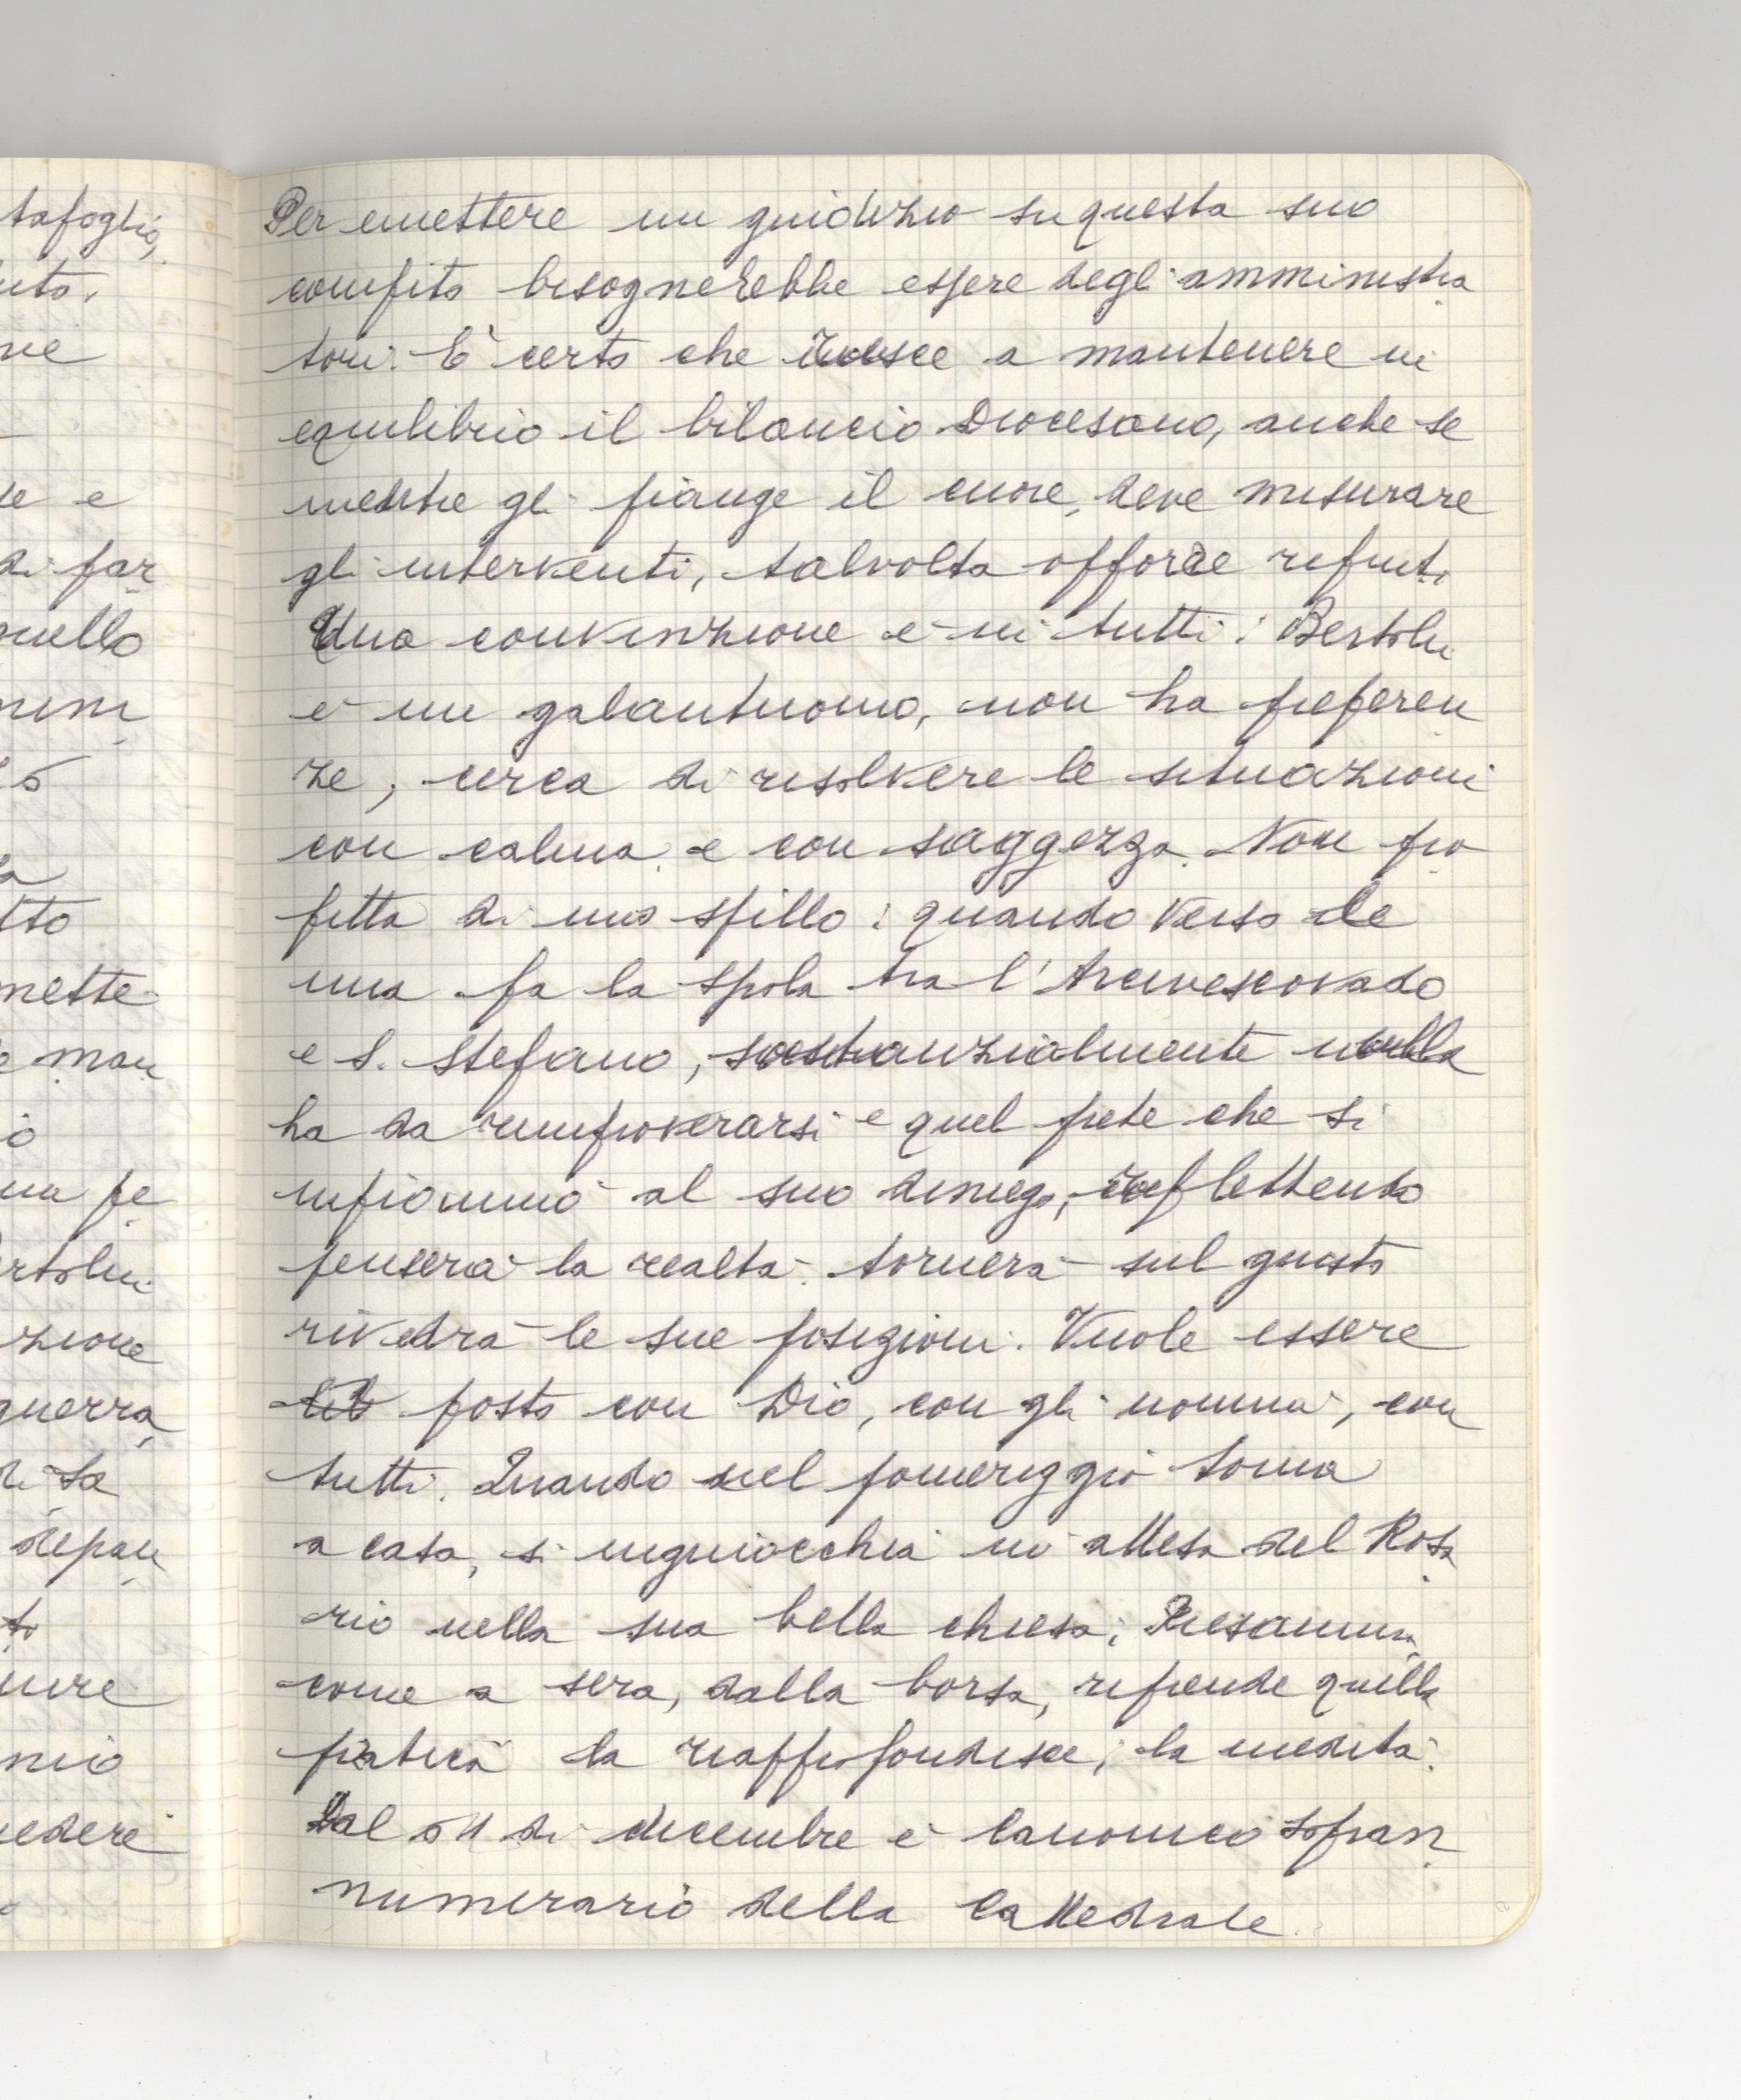 tafoglio,
uto.
ne
te e
di far
quello
nenı
to
la
tto
mette
e man
io
una pe
ertolini
zione
guerra
di ta
stepan
to
uire
nio
vedere
Per emettere un guidizio su questa suo
compito bisognerebbe essere degli amministra
tori. E' certo che riesce a mantenere in
equilibrio il bilancio Diocesano, anche se
mentre gli piange il cuore, deve misurare
gli interventi, talvolta opporre rifiuti
Una convinzione è in tutti: Bertolini
è un galantuomo, non ha preferen
ze, cerca di risolvere le situazioni
con calma e con saggezza. Non pro
fitta di uno spillo: quando verso le
una fa la spola tra l'Arcivescovado
e S. Stefano, sostanzialmente nulla
ha da rimproverarsi e quel prete che si
infiammò al suo diniego, riflettendo
penserà la realtà tornerà sul giusto
rivedrà le sue posizioni. Vuole essere
posto con Dio, con gli uomini, con
tutti. Quando nel pomeriggio torna
a casa, si inginocchia in attesa del Rosa
rio nella sua bella chiesa; Riesamina
come a sera, dalla borsa, riprende quella
pratica la riapprofondisce, la medita.
Dal di dicembre è Canonico sopran
numerario della Cattedrale.